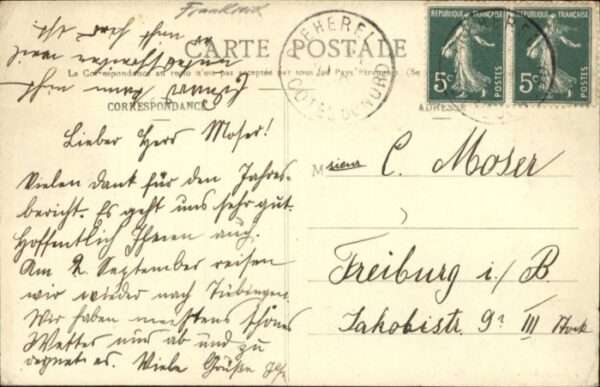 Frankreich
CARTE POSTALE
La Correspondance au recto n'est pas acceptée par tous les Pays étrangers. (Se
CORRESPONDANCE
ADRESSE
PLEHEREL
COTES DU NORD
RÉPUBLIQUE FRANÇAISE
5c
POSTES
RÉPUBLIQUE FRANÇAISE
5c
POSTES
Lieber Herr Moser!
Vielen Dank für den Jahres-
bericht. Es geht uns sehr gut.
Hoffentlich Ihnen auch.
Am 2. September reisen
wir wieder nach Tübingen.
Wir haben meistens schönes
Wetter nur ab und zu
regnet es. Viele Grüße
Monsieur C. Moser
Freiburg i/B.
Jakobistr. 9a III Stock